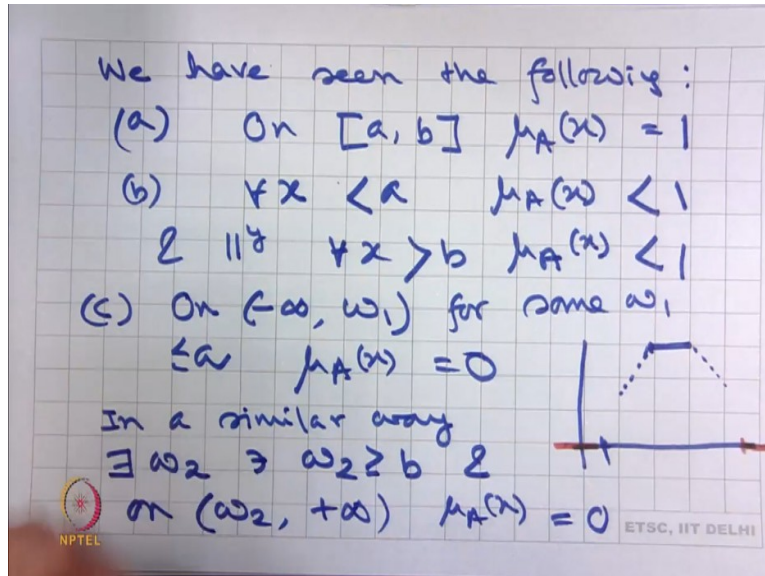 We have seen the followig :
(a) On [a, b] μA(x) = 1
(b) ∀x < a μA(x) < 1
& ||ly ∀x > b μA(x) < 1
(c) On (-∞, ω1) for some ω1
≤a μA(x) = 0
In a similar way
∃ ω2 ∋ ω2 ≥ b &
on (ω2, +∞) μA(x) = 0
NPTEL
ETSC, IIT DELHI